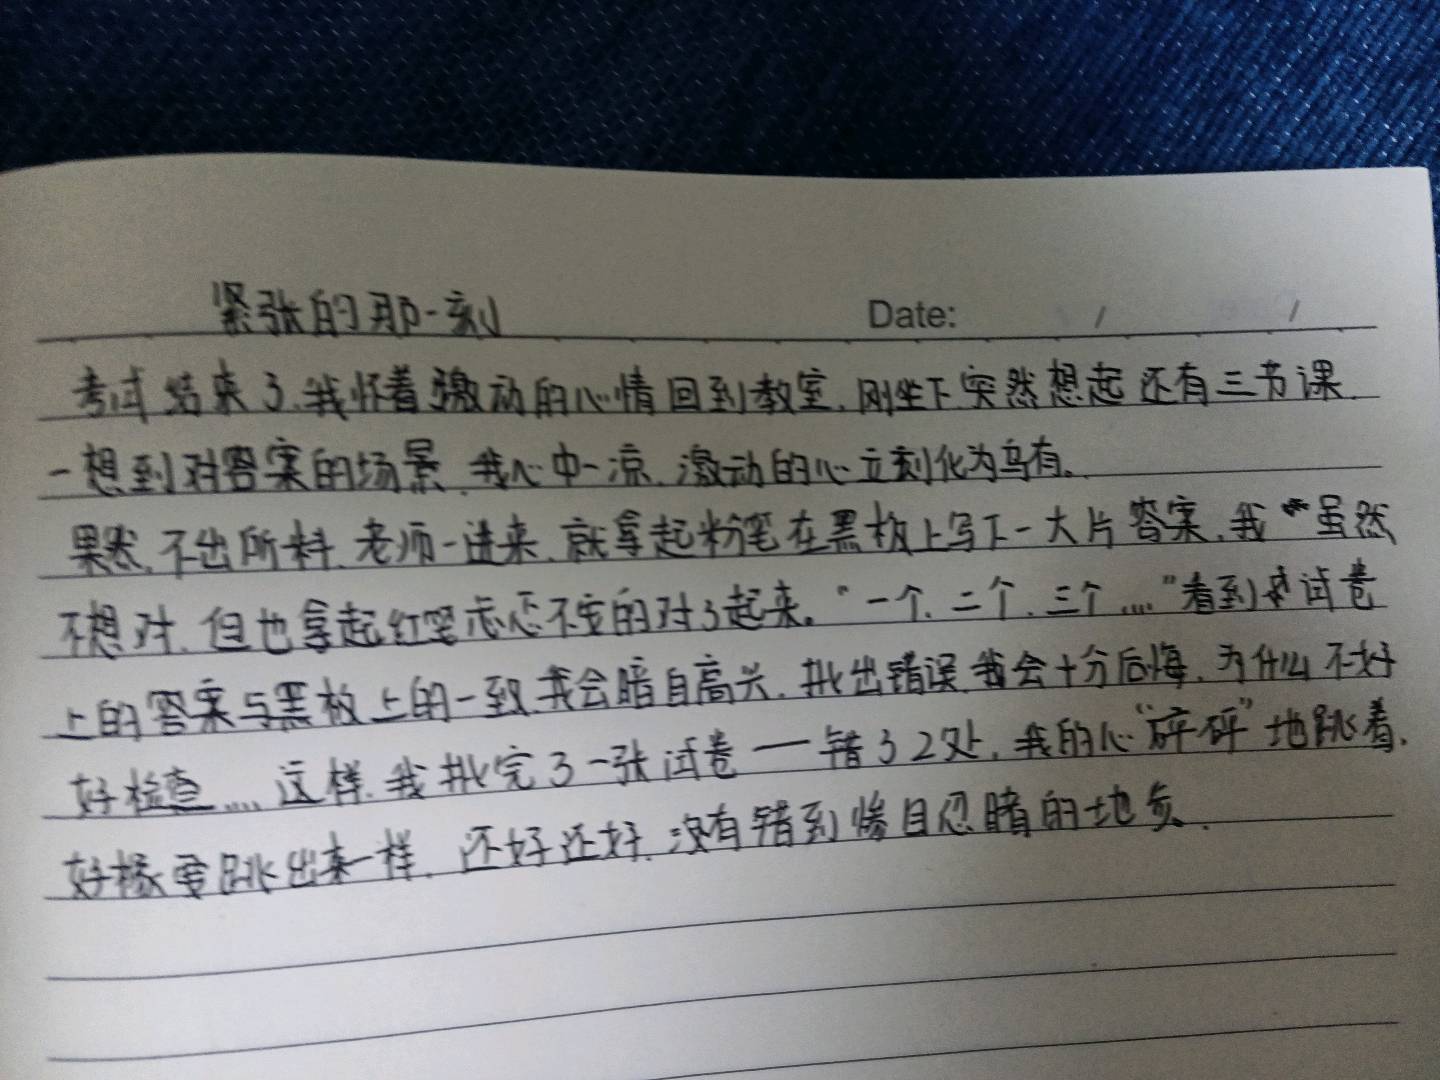 紧张的那一刻 Date: / /
考试结束了,我怀着激动的心情回到教室,刚坐下,突然想起还有三节课,
一想到对答案的场景,我心中一凉,激动的心立刻化为乌有。
果然,不出所料,老师一进来,就拿起粉笔在黑板上写下一大片答案,我虽然
不想对,但也拿起红笔忐忑不安的对了起来。“一个,二个,三个....”看到试卷
上的答案与黑板上的一致,我会暗自高兴,批出错误,我会十分后悔,为什么不好
好检查....这样,我批完了一张试卷——错了2处,我的心“砰砰”地跳着,
好橡要跳出来一样,还好还好,没有错到惨目忍睹的地步.